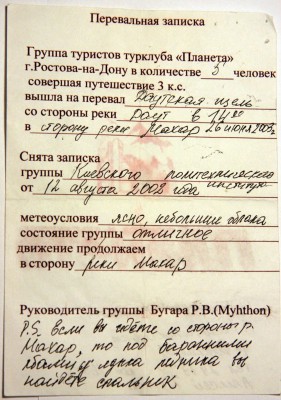 Перевальная записка
Группа туристов турклуба «Планета»
г.Ростова-на-Дону в количестве 5 человек
совершая путешествие 3 к.с.
вышла на перевал Даутская щель
со стороны реки Даут в 14 00
в сторону реки Махар 26 июня 2003г.
Снята записка
группы Киевского политехнического
от 12 августа 2002 года института
метеоусловия ясно, небольшие облака
состояние группы отличное
движение продолжаем
в сторону реки Махар
Руководитель группы Бугара Р.В.(Myhthon)
P.S. если вы идёте со стороны р.
Махар, то под бараньими
лбами у ледника вы
найдёте спальник